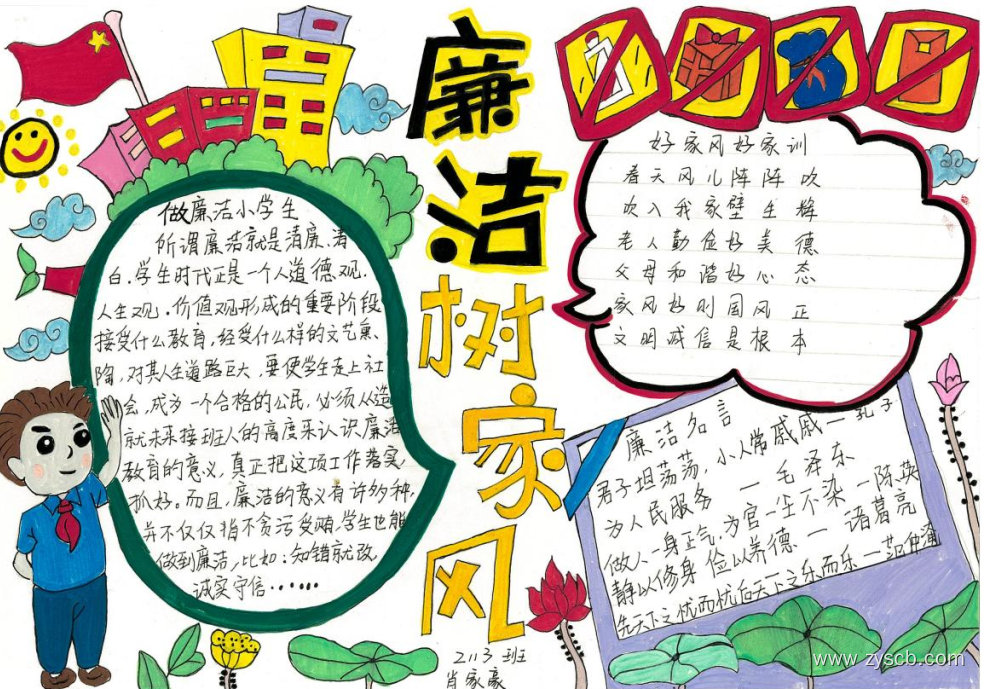 廉洁树家风
做廉洁小学生
所谓廉洁就是清廉、清
白。学生时代正是一个人道德观、
人生观、价值观形成的重要阶段
接受什么教育,经受什么样的文艺熏
陶,对其人生道路巨大,要使学生走上社
会,成为一个合格的公民,必须从造
就未来接班人的高度来认识廉洁
教育的意义,真正把这项工作落实,
抓好。而且,廉洁的意义有许多种,
并不仅仅指不贪污受贿,学生也能
做到廉洁,比如:知错就改,
诚实守信······
好家风好家训
春天风儿阵阵吹
吹入我家壁生辉
老人勤俭好美德
父母和谐好心态
家风好则国风正
文明诚信是根本
廉洁名言
君子坦荡荡,小人常戚戚——孔子
为人民服务 —毛泽东
做人一身正气,为官一尘不染—陈英
静以修身 俭以养德 — 诸葛亮
先天下之忧而忧后天下之乐而乐—范仲淹
2113班
肖家豪
www.zyscb.com